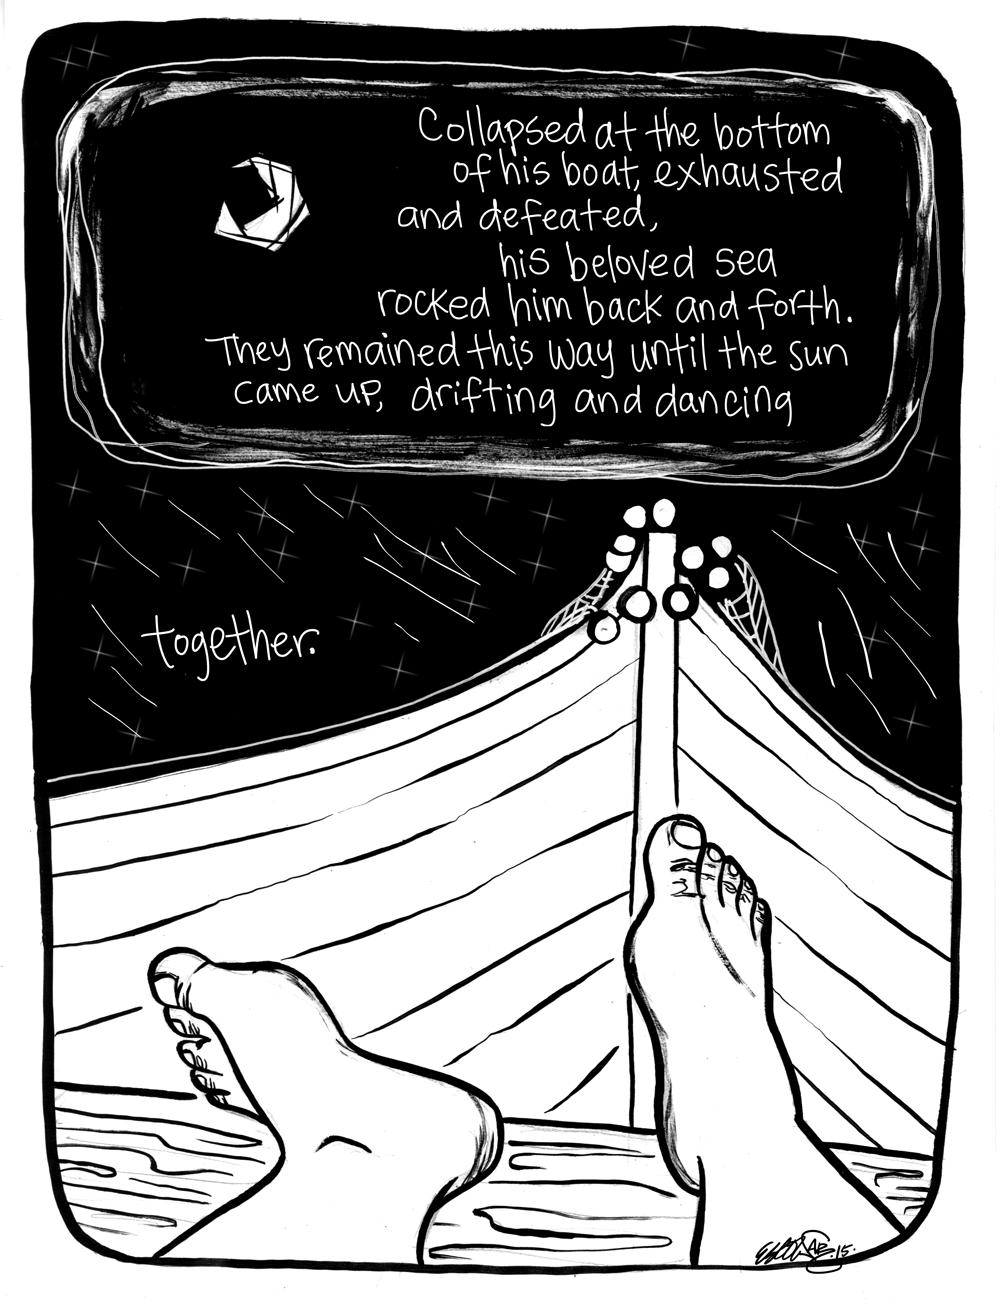 Collapsed at the bottom
of his boat, exhausted
and defeated,
his beloved sea
rocked him back and forth.
They remained this way until the sun
came up, drifting and dancing
together.